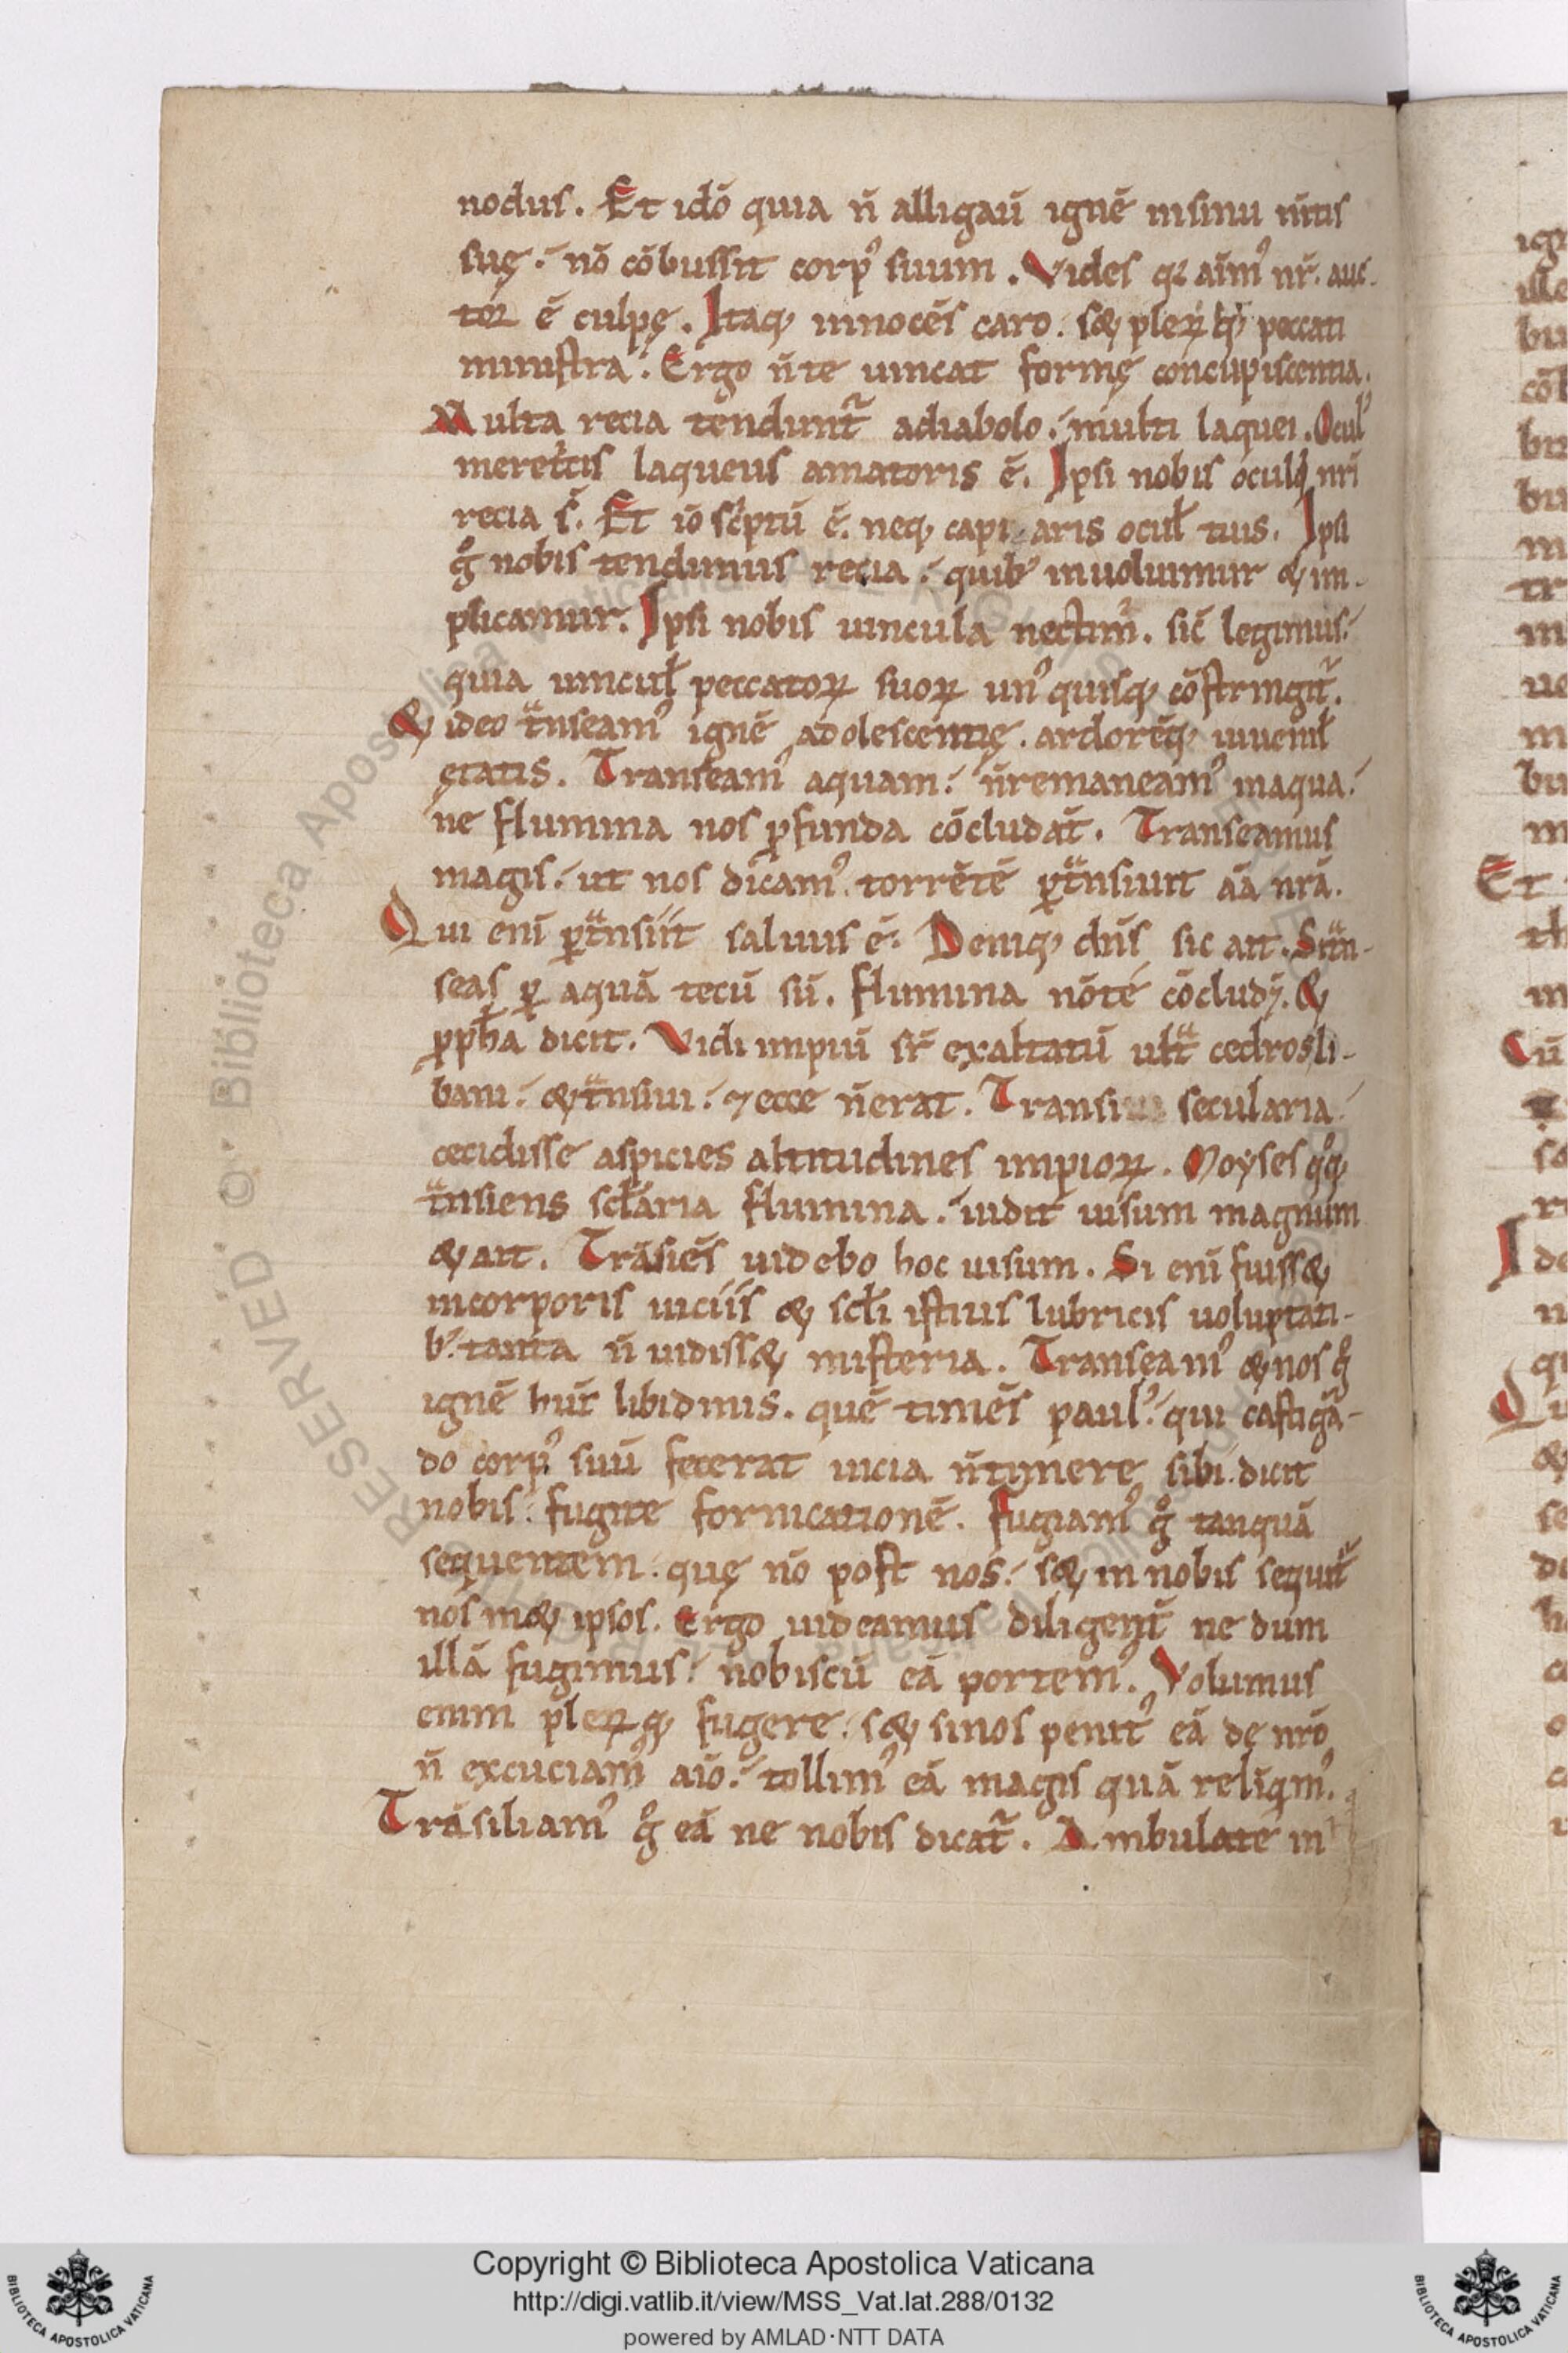 nodus. Et idō quia n̄ alligaū ignē insinu m̄tis
suę. nō cōbussit corpꝰ suum. Vides qꝛ aīmꝰ nr̄. auc-
toꝛ ē culpę. Itaq; innocēs caro. s& pleꝝq; peccati
ministra. Ergo n̄ te uincat formę concupiscentia.
Multa recia tendunt᷑ adiabolo. multi laquei. Oculꝰ
meret̄cis laqueus amatoris ē. Ipsi nobis oculi nr̄i
recia s̄. Et iō sc̄ptū ē. neq; capi aris ocul̄ tuis. Ipsi
gͦ nobis tendimus recia. quibꝰ inuoluimur & im-
plicamur. Ipsi nobis uincula nectimꝰ. sic̄ legimus.
quia uincul̄ peccatoꝝ suoꝝ unꝰ quisq; cōstringit᷑.
& ideo tͣnseamꝰ ignē adolescentię. ardorēq; iuuenil̄
ętatis. Transeamꝰ aquam. n̄ remaneamꝰ inaqua.
ne flumina nos ꝓfunda cōcludāt. Transeamus
magis. ut nos dicamꝰ. torrētē ꝑtͣnsiuit aā nr̄ā.
Qui enī ꝑtͣnsiit saluus ē. Deniq; dn̄s sic ait. Si tͣn-
seas ꝑ aquā tecū sū. flumina nōte cōcludꝫ. &
ꝓph̄a dicit. Vidi impiū sr̄ exaltatū ultͣ cedrosli-
bani. & tͣnsiui. ⁊ ecce n̄erat. Transi secularia.
cecidisse aspicies altitudines impioꝝ. Moyses qͦq;
tͣnsiens scl̄aria flumina. uidit uisum magnum
& ait. Trāsiēs uidebo hoc uisum. Si enī fuiss&
incorporis uiciis & scl̄i istius lubricis uoluptati-
bꝰ. tanta n̄ uidiss& misteria. Transeamꝰ & nos gͦ
ignē huꝰ libidinis. quē timēs paulꝰ. qui castigā-
do corpꝰ suū fecerat uicia n̄ timere sibi. dicit
nobis. fugite fornicationē. fugiamꝰ gͦ tanquā
sequentem. quę nō post nos. s& in nobis sequit᷑
nos m& ipsos. Ergo uideamus diligent̄ ne dum
illā fugimus. nobiscū eā portemꝰ. Volumus
enim pleꝝq; fugere. s& sinos penitꝰ eā de nr̄o
n̄ excuciamꝰ aīo. tollimꝰ eā magis quā relīq̄mꝰ.
Trāsiliamꝰ gͦ eā ne nobis dicat᷑. Ambulate in
Copyright © Biblioteca Apostolica Vaticana
http://digi.vatlib.it/view/MSS_Vat.lat.288/0132
powered by AMLAD·NTT DATA